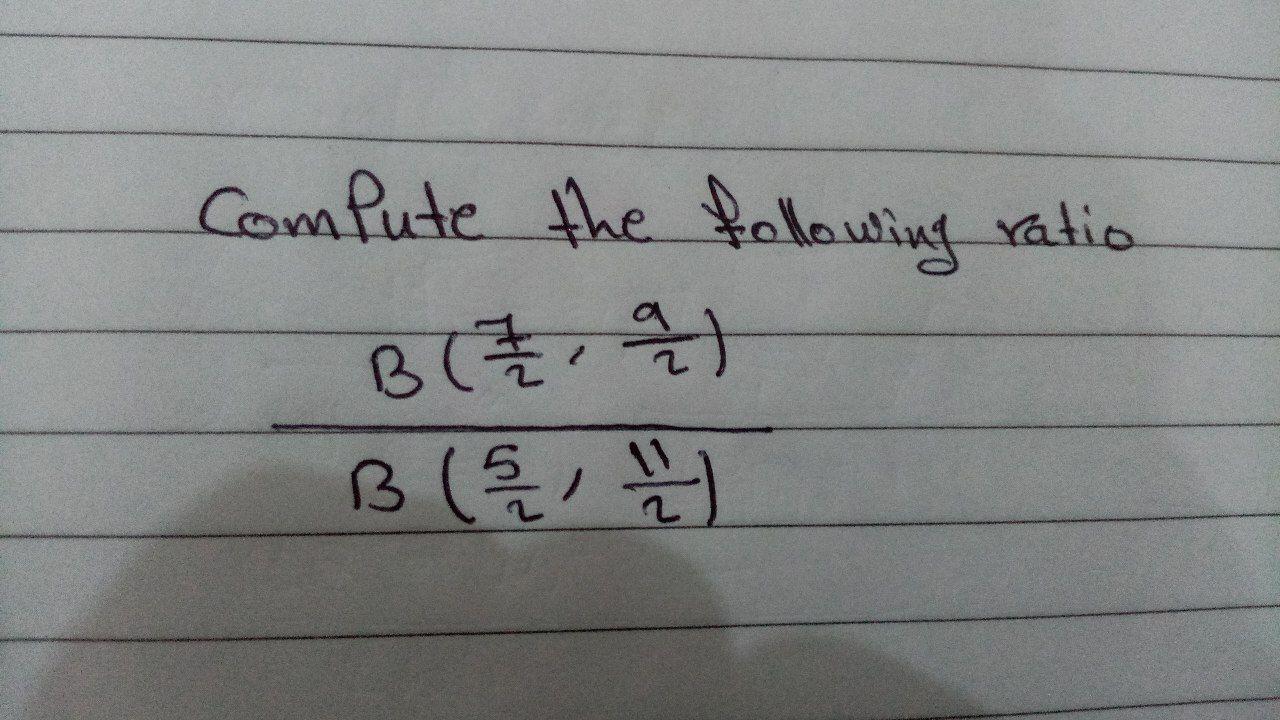 Compute the following ratio
B(7/2, 9/2)
B(5/2, 11/2)